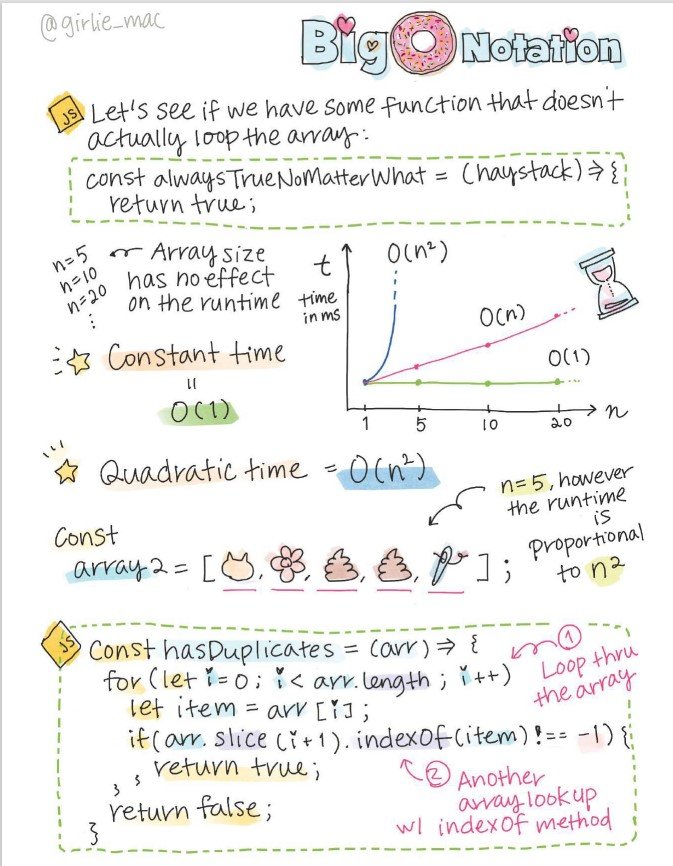 @girlie_mac
Big O Notation
JS
Let's see if we have some function that doesn't
actually loop the array:
const alwaysTrueNoMatterWhat = (haystack) => {
return true;
n=5
n=10
n=20
⋮
Array size
has no effect
on the runtime
Constant time
=
O(1)
t
time
in ms
O(n²)
O(n)
O(1)
1 5 10 20
n
Quadratic time = O(n²)
n=5, however
the runtime
is
proportional
to n²
Const
array2 = [ , , , , ];
JS
Const hasDuplicates = (arr) => {
for (let i=0; i< arr.length; i++)
let item = arr [i];
if(arr. slice (i+1). indexOf(item) !== -1) {
return true;
} }
return false;
}
1
Loop thru
the array
2 Another
array look up
w/ indexOf method